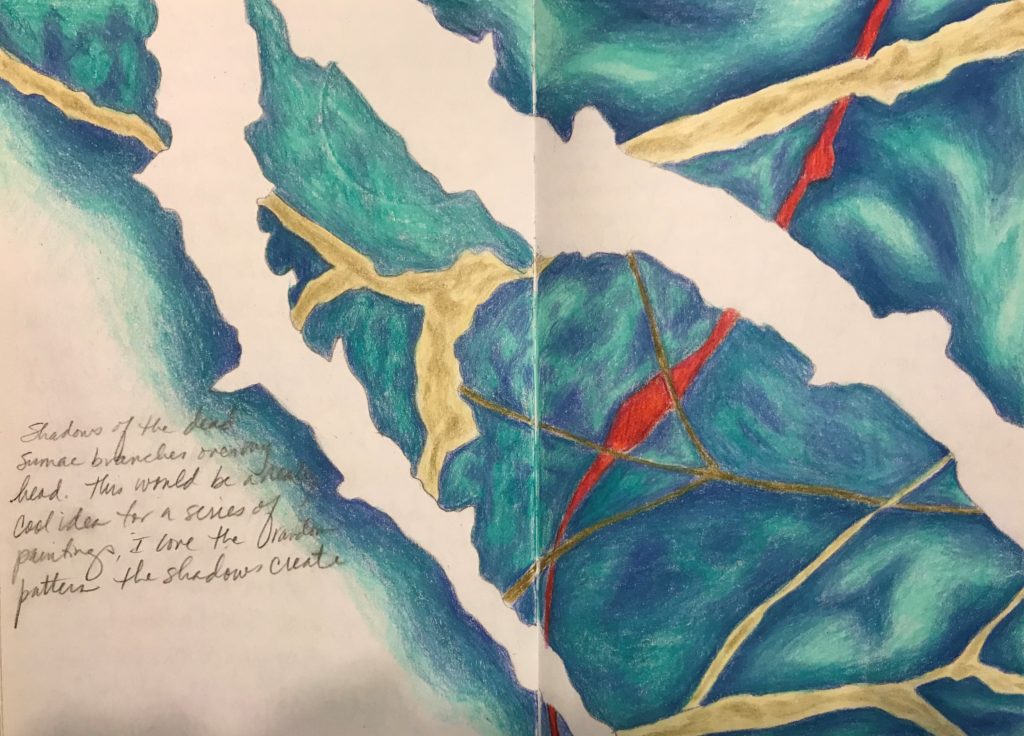 Shadows of the dead
Sumac branches over my
head. This would be a really
cool idea for a series of
paintings, I love the random
pattern the shadows create